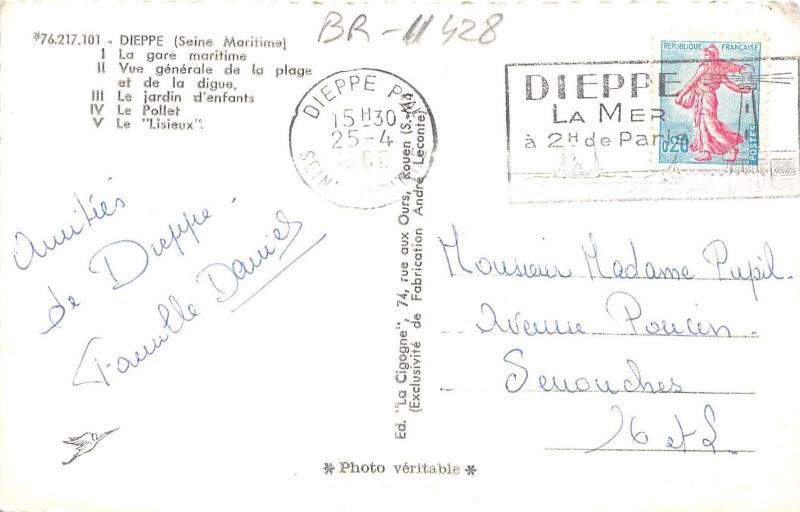 BR-11428
*76.217.101 - DIEPPE (Seine Maritime)
I La gare maritime
II Vue générale de la plage
et de la digue.
III Le jardin d'enfants
IV Le Pollet
V Le "Lisieux".
DIEPPE
15H30
25-4
DIEPPE
LA MER
à 2H de Paris
REPUBLIQUE FRANÇAISE
0,20
POSTES
Amitiés
de Dieppe.
Famille Daniel
Ed. "La Cigogne", 74, rue aux Ours, Rouen (S.-M.)
(Exclusivité de Fabrication André Leconte)
Monsieur Madame Pupil.
Avenue
Senonches
E et L.
* Photo véritable *